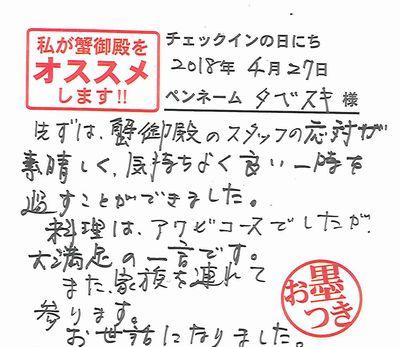 私が蟹御殿を
オススメ
します!!
チェックインの日にち
2018年 4月27日
ペンネーム タベスキ 様
先ずは、蟹御殿のスタッフの応対が
素晴しく、気持ちよく良い一時を
過すことができました。
料理は、アワビコースでしたが、
大満足の一言です。
また、家族を連れて
参ります。
お世話になりました。
お墨つき